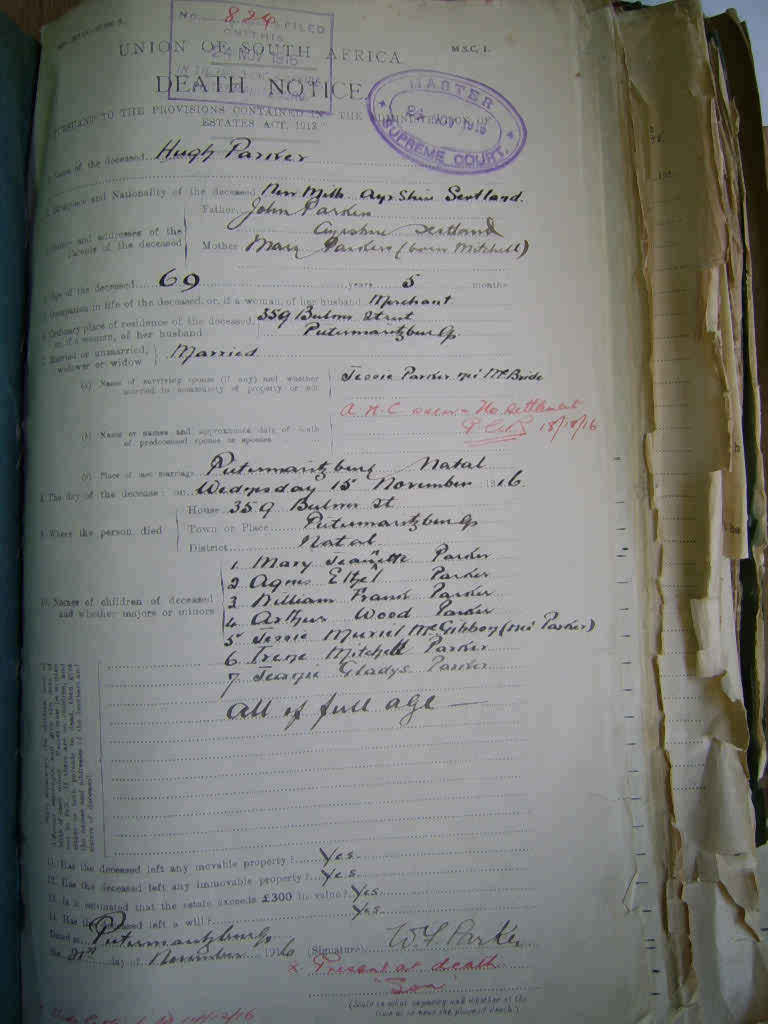 No. 824 FILED
ON THIS
24 NOV 1916
M.S.C. 1.
UNION OF SOUTH AFRICA
DEATH NOTICE.
MASTER
24 NOV 1916
SUPREME COURT.
PURSUANT TO THE PROVISIONS CONTAINED IN THE ADMINISTRATION OF
ESTATES ACT, 1913.
1. Name of the deceased Hugh Parker
2. Birthplace and Nationality of the deceased New Mills Ayrshire Scotland.
3. Names and addresses of the parents of the deceased
Father John Parker
Ayrshire Scotland
Mother Mary Parker (born Mitchell)
4. Age of the deceased 69 years 5 months
5. Occupation in life of the deceased, or, if a woman, of her husband Merchant
6. Ordinary place of residence of the deceased, or, if a woman, of her husband 359 Bulwer Street
Pietermaritzburg
7. Married or unmarried, widower or widow Married
(a) Name of surviving spouse (if any) and whether married in community of property or not Jessie Parker née McBride
A.N.C. seen - No settlement
18/12/16
(b) Name or names and approximate date of death of predeceased spouse or spouses
(c) Place of last marriage Pietermaritzburg Natal
8. The day of the decease: on Wednesday 15 November 1916.
9. Where the person died
House 359 Bulwer St
Town or Place Pietermaritzburg
District Natal
10. Names of children of deceased and whether majors or minors
1. Mary Jeanette Parker
2 Agnes Ethel Parker
3 William Frank Parker
4 Arthur Wood Parker
5 Jessie Muriel McGibbon (née Parker)
6 Irene Mitchell Parker
7 Jeanie Gladys Parker
All of full age —
11. Has the deceased left any movable property? Yes
12. Has the deceased left any immovable property? Yes
13. Is it estimated that the estate exceeds £300 in value? Yes
14. Has the deceased left a will? Yes
Dated at Pietermaritzburg
the 21st day of November 1916
(Signature) W. F. Parker
Present at death
"Son"
(State in what capacity and whether at the time at or near the place of death.)